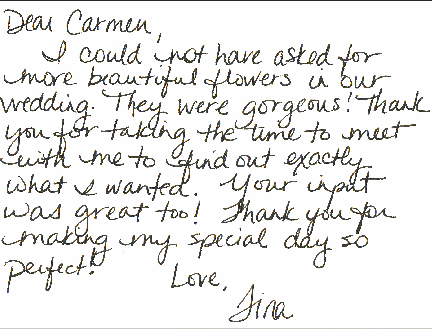 Dear Carmen,
I could not have asked for
more beautiful flowers in our
wedding. They were gorgeous! Thank
you for taking the time to meet
with me to find out exactly
what I wanted. Your input
was great too! Thank you for
making my special day so
perfect!
Love,
Tina